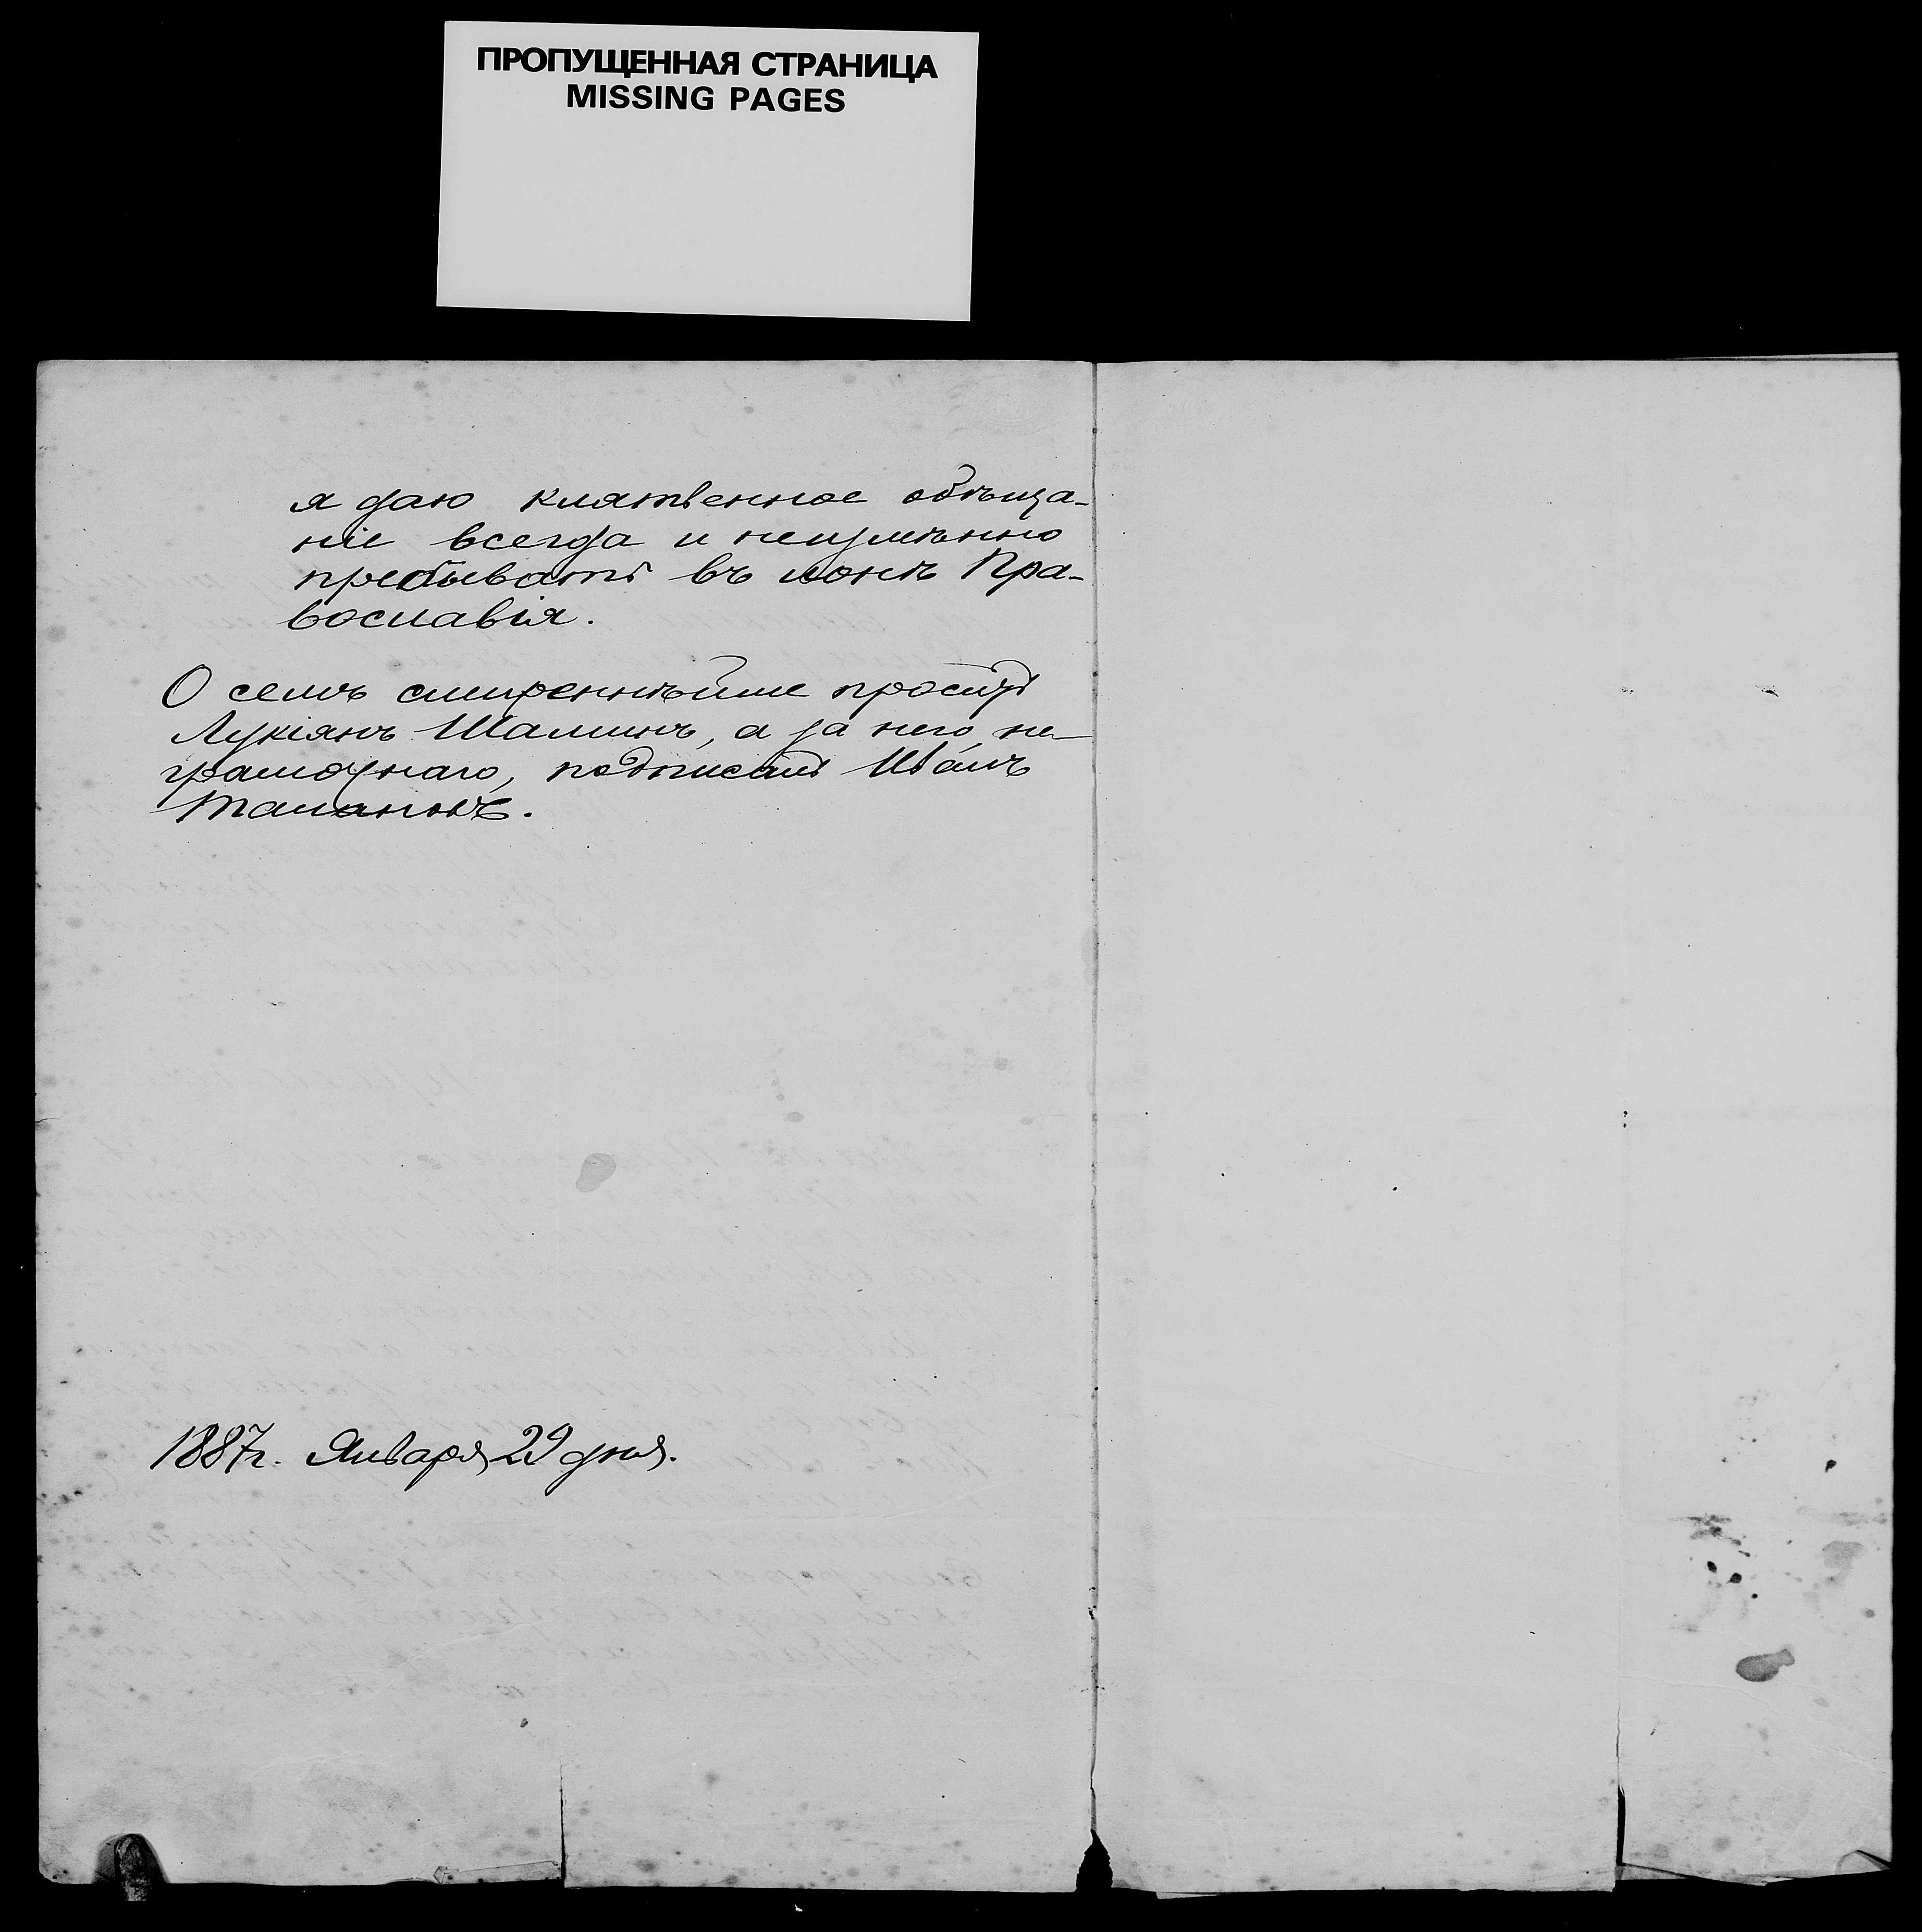 ПРОПУЩЕННАЯ СТРАНИЦА
MISSING PAGES
я даю клятвенное обѣща-
ніе всегда и неизмѣнно
пребывать въ лонѣ Пра-
вославія.
О семъ смиреннѣйше проситъ
Лукіянъ Шалминъ, а за него, не-
грамотнаго, подписалъ Иванъ
1887 г. Января 29 дня.